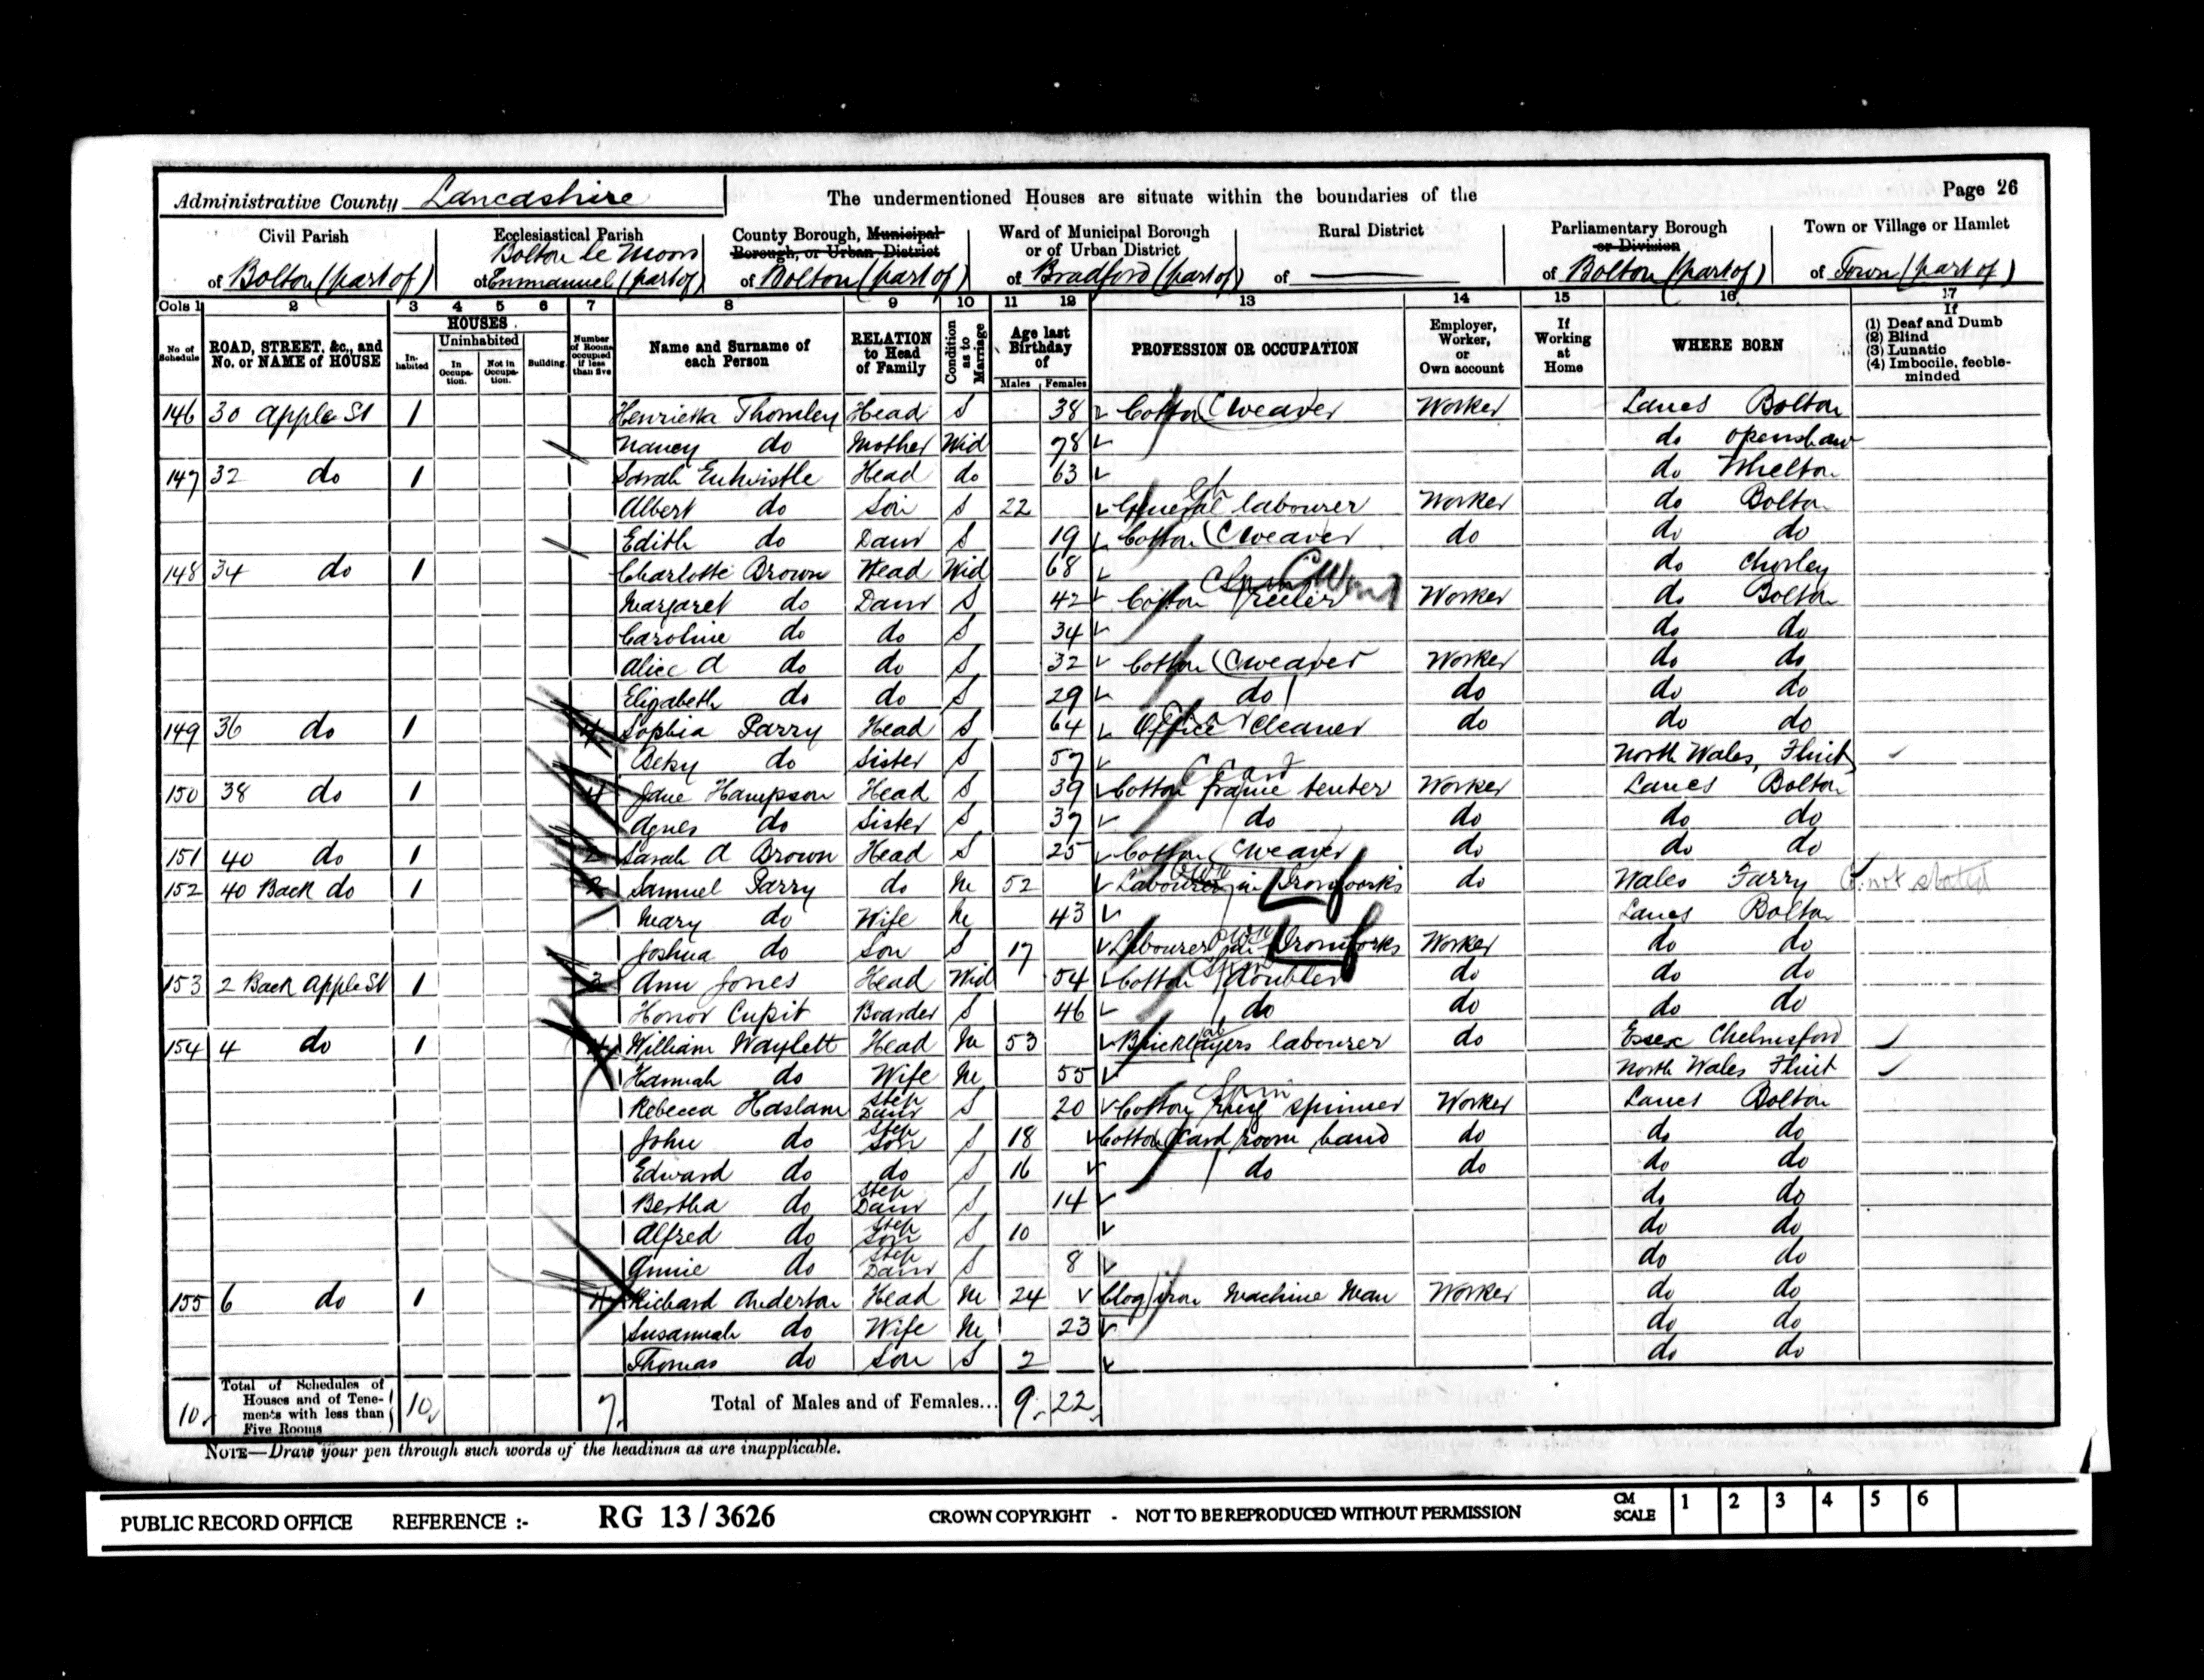 Administrative County Lancashire The undermentioned Houses are situate within the boundaries of the Page 26
Civil Parish of Bolton (part of)
Ecclesiastical Parish Bolton le Moors of Emmanuel (part of)
County Borough, Municipal Borough, or Urban District of Bolton (part of)
Ward of Municipal Borough or of Urban District of Bradford (part of)
Rural District of
Parliamentary Borough or Division of Bolton (part of)
Town or Village or Hamlet of Town (part of)
Cols 1 2 3 4 5 6 7 8 9 10 11 12 13 14 15 16 17
No of Schedule
ROAD, STREET, &c., and No. or NAME of HOUSE
HOUSES
Inhabited
Uninhabited
In Occupation.
Not in Occupation.
Building
Number of Rooms occupied if less than five
Name and Surname of each Person
RELATION to Head of Family
Condition as to Marriage
Age last Birthday of
Males Females
PROFESSION OR OCCUPATION
Employer, Worker, or Own account
If Working at Home
WHERE BORN
If
(1) Deaf and Dumb
(2) Blind
(3) Lunatic
(4) Imbecile, feeble-minded
146 30 Apple St 1 Henrietta Thornley Head S 38 Cotton weaver Worker Lancs Bolton
Nancy do Mother Wid 78 do Openshaw
147 32 do 1 Sarah Entwistle Head do 63 do Whelton
Albert do Son S 22 General labourer Worker do Bolton
Edith do Daur S 19 Cotton weaver do do do
148 34 do 1 Charlotte Brown Head Wid 68 do Chorley
Margaret do Daur S 42 Cotton reeler Worker do Bolton
Caroline do do S 34 do do
Alice A do do S 32 Cotton weaver Worker do do
Elizabeth do do S 29 do do do do
149 36 do 1 4 Sophia Parry Head S 64 Office Cleaner do do do
Betsy do Sister S 57 North Wales, Flint
150 38 do 1 4 Jane Hampson Head S 39 Cotton frame tenter Worker Lancs Bolton
Agnes do Sister S 37 do do do do
151 40 do 1 2 Sarah A Brown Head S 25 Cotton weaver do do do
152 40 Back do 1 2 Samuel Parry do M 52 Labourer in Ironworks do Wales Farry not stated
Mary do Wife M 43 Lancs Bolton
Joshua do Son S 17 Labourer in Ironworks Worker do do
153 2 Back Apple St 1 3 Ann Jones Head Wid 54 Cotton doubler do do do
Honor Cupit Boarder S 46 do do do do
154 4 do 1 4 William Waylett Head M 53 Bricklayers labourer do Essex Chelmsford
Hannah do Wife M 55 North Wales Flint
Rebecca Haslam Step Daur S 20 Cotton ring spinner Worker Lancs Bolton
John do Step Son S 18 Cotton Card room hand do do do
Edward do do S 16 do do do do
Bertha do Step Daur S 14 do do
Alfred do Step Son S 10 do do
Annie do Step Daur S 8 do do
155 6 do 1 4 Richard Anderton Head M 24 Clog iron Machine Man Worker do do
Susannah do Wife M 23 do do
Thomas do Son S 2 do do
10 Total of Schedules of Houses and of Tenements with less than Five Rooms 10 7 Total of Males and of Females... 9 22
NOTE—Draw your pen through such words of the headings as are inapplicable.
PUBLIC RECORD OFFICE REFERENCE :- RG 13 / 3626 CROWN COPYRIGHT - NOT TO BE REPRODUCED WITHOUT PERMISSION CM SCALE 1 2 3 4 5 6